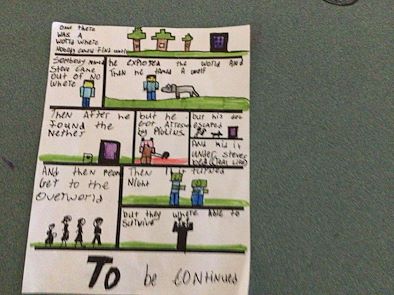 One there
was a
world where
Nobody could find until
Somebody named
Steve came
out of no
where
he explored the world and
Then he tamed a wolf
Then After he
found the
Nether
but he
got attacked
by Piglins
but his dog
escaped
And hid it
under steves
bed
And then
Get to the
Overworld
Then it turned
Night
but they where able to
survive
To be continued